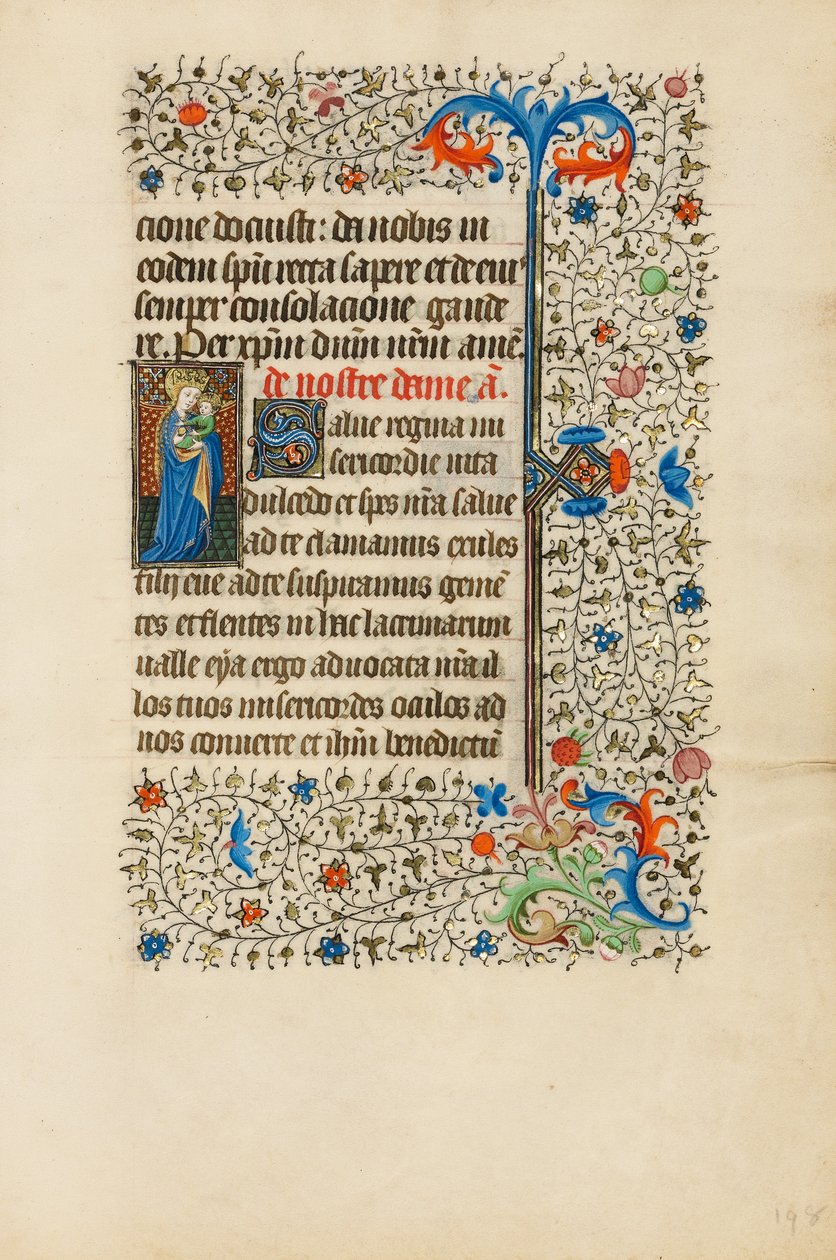 cione docuisti: da nobis in
eodem spũ recta sapere et de eiꝰ
semper consolacione gaude
re. Per xpm dñm nrm amē.
de nostre dame ã.
Salue regina mi
sericordie uita
dulcedo et spes nrã salue
ad te clamamus exules
filij eue ad te suspiramus gemē
tes et flentes in hac lacrimarum
ualle eya ergo aduocata nrã il
los tuos misericordes oculos ad
nos conuerte et ihm benedictū
198